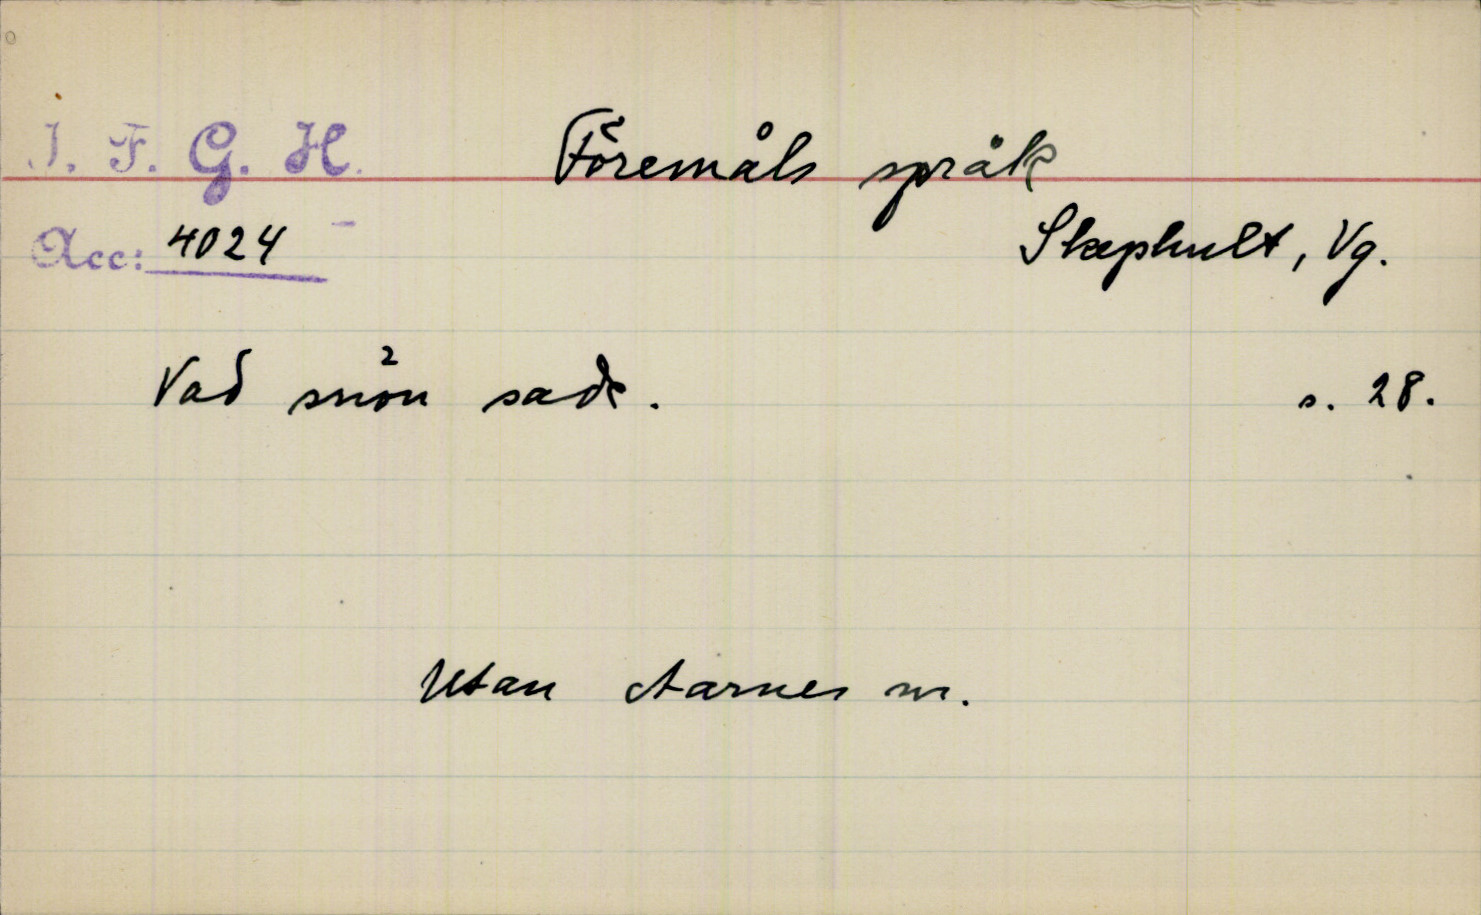 I. F. G. H. Föremåls språk
Acc: 4024 Skephult, Vg.
Vad snön sade. s. 28.
Utan Aarnes nr.